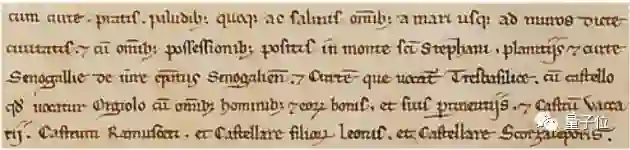 cum curte. pratis. paludib; quoq; ac salinis omib; a mari usq; ad muros dicte
ciuitatis. ⁊ cū omib; possessionib; positis in monte sc̄i Stephani, planitijs ⁊ curte
Senogallie de iure Senogalien̄. ⁊ Curtem que uocat̄ Tresbasilice. cū castello
qd̄ uocatur Orgiolo cū omib; hominib; ⁊ eoꝝ bonis, et suis ꝑtinentijs. ⁊ Castrū Vacca
rij. Castrum Ramusceti. et Castellare filioꝝ Leonis. et Castellare
量子位